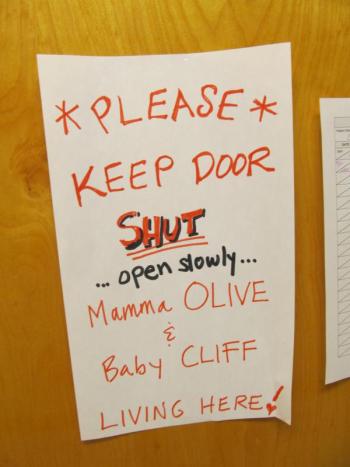 *PLEASE*
KEEP DOOR
SHUT
... open slowly...
Mamma OLIVE
&
Baby CLIFF
LIVING HERE!